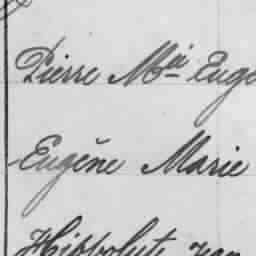 Pierre Mie Euge
Eugène Marie
Hippolyte Jean